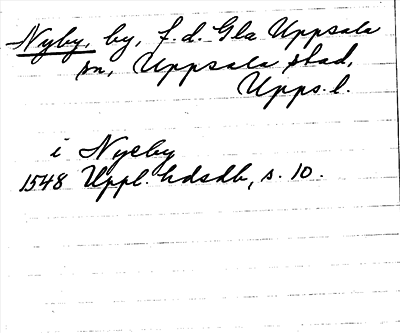 Nyby, by, f.d. Gla Uppsala
sn, Uppsala stad,
Upps.l.
i Nyeby
1548 Uppl. hdsdb, s. 10.